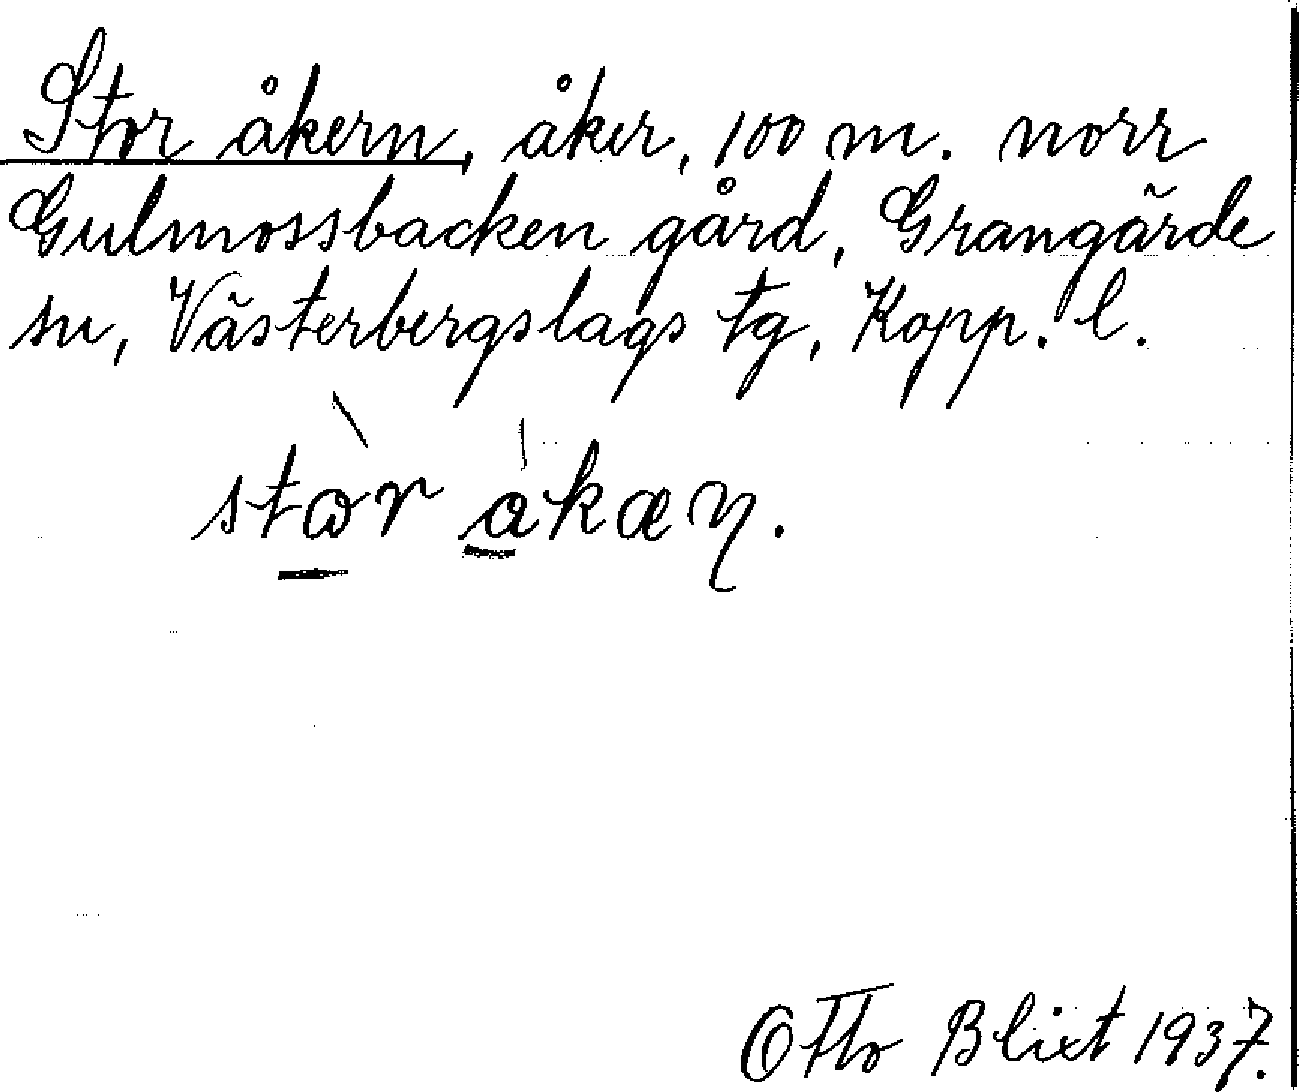 Stor åkern, åker, 100 m. norr
Gulmossbacken gård, Grangärde
sn, Västerbergslags tg, Kopp. l.
stωr åkæɳ.
Otto Blixt 1937.